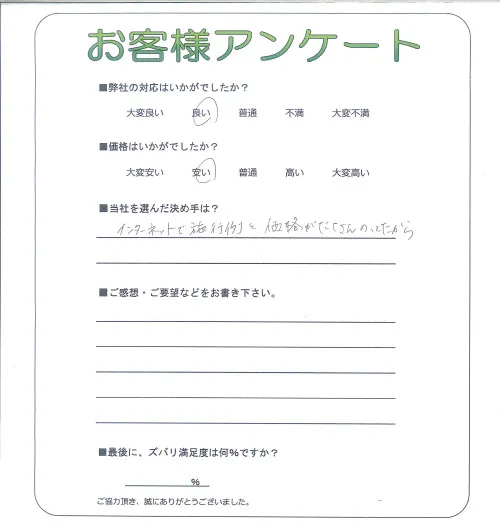 お客様アンケート
■弊社の対応はいかがでしたか？
大変良い 良い 普通 不満 大変不満
■価格はいかがでしたか？
大変安い 安い 普通 高い 大変高い
■当社を選んだ決め手は？
インターネットで施行例と価格がたくさんのってたから
■ご感想・ご要望などをお書き下さい。
■最後に、ズバリ満足度は何%ですか？
%
ご協力頂き、誠にありがとうございました。